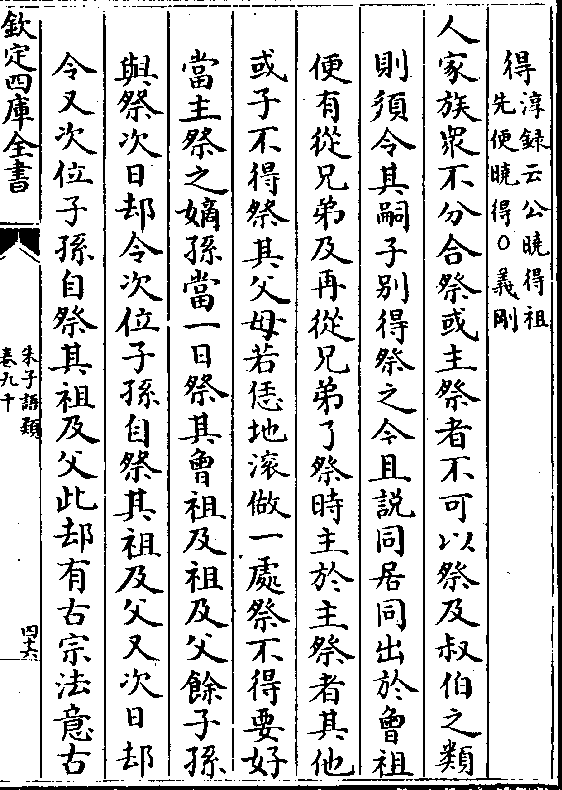 得淳録云公曉得祖
先便曉得○義剛
人家族衆不分合祭或主祭者不可以祭及叔伯之類
則須令其嗣子別得祭之今且説同居同出於曾祖
便有從兄弟及再從兄弟了祭時主於主祭者其他
或子不得祭其父母若恁地滚做一處祭不得要好
當主祭之嫡孫當一日祭其曾祖及祖及父餘子孫
與祭次日却令次位子孫自祭其祖及父又次日却
令又次位子孫自祭其祖及父此却有古宗法意古
欽定四庫全書
朱子語類
卷九十
四十六